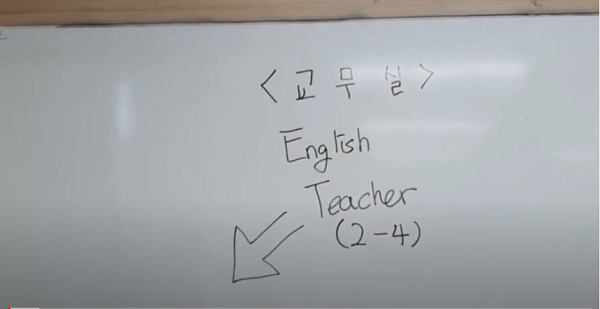 <교무실>
English
Teacher
(2-4)